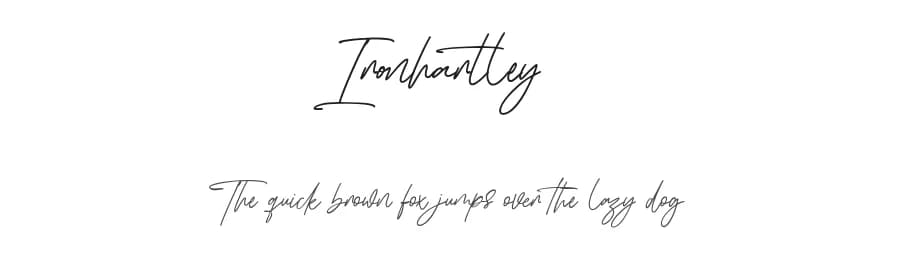 Ironhartley
The quick brown fox jumps over the lazy dog